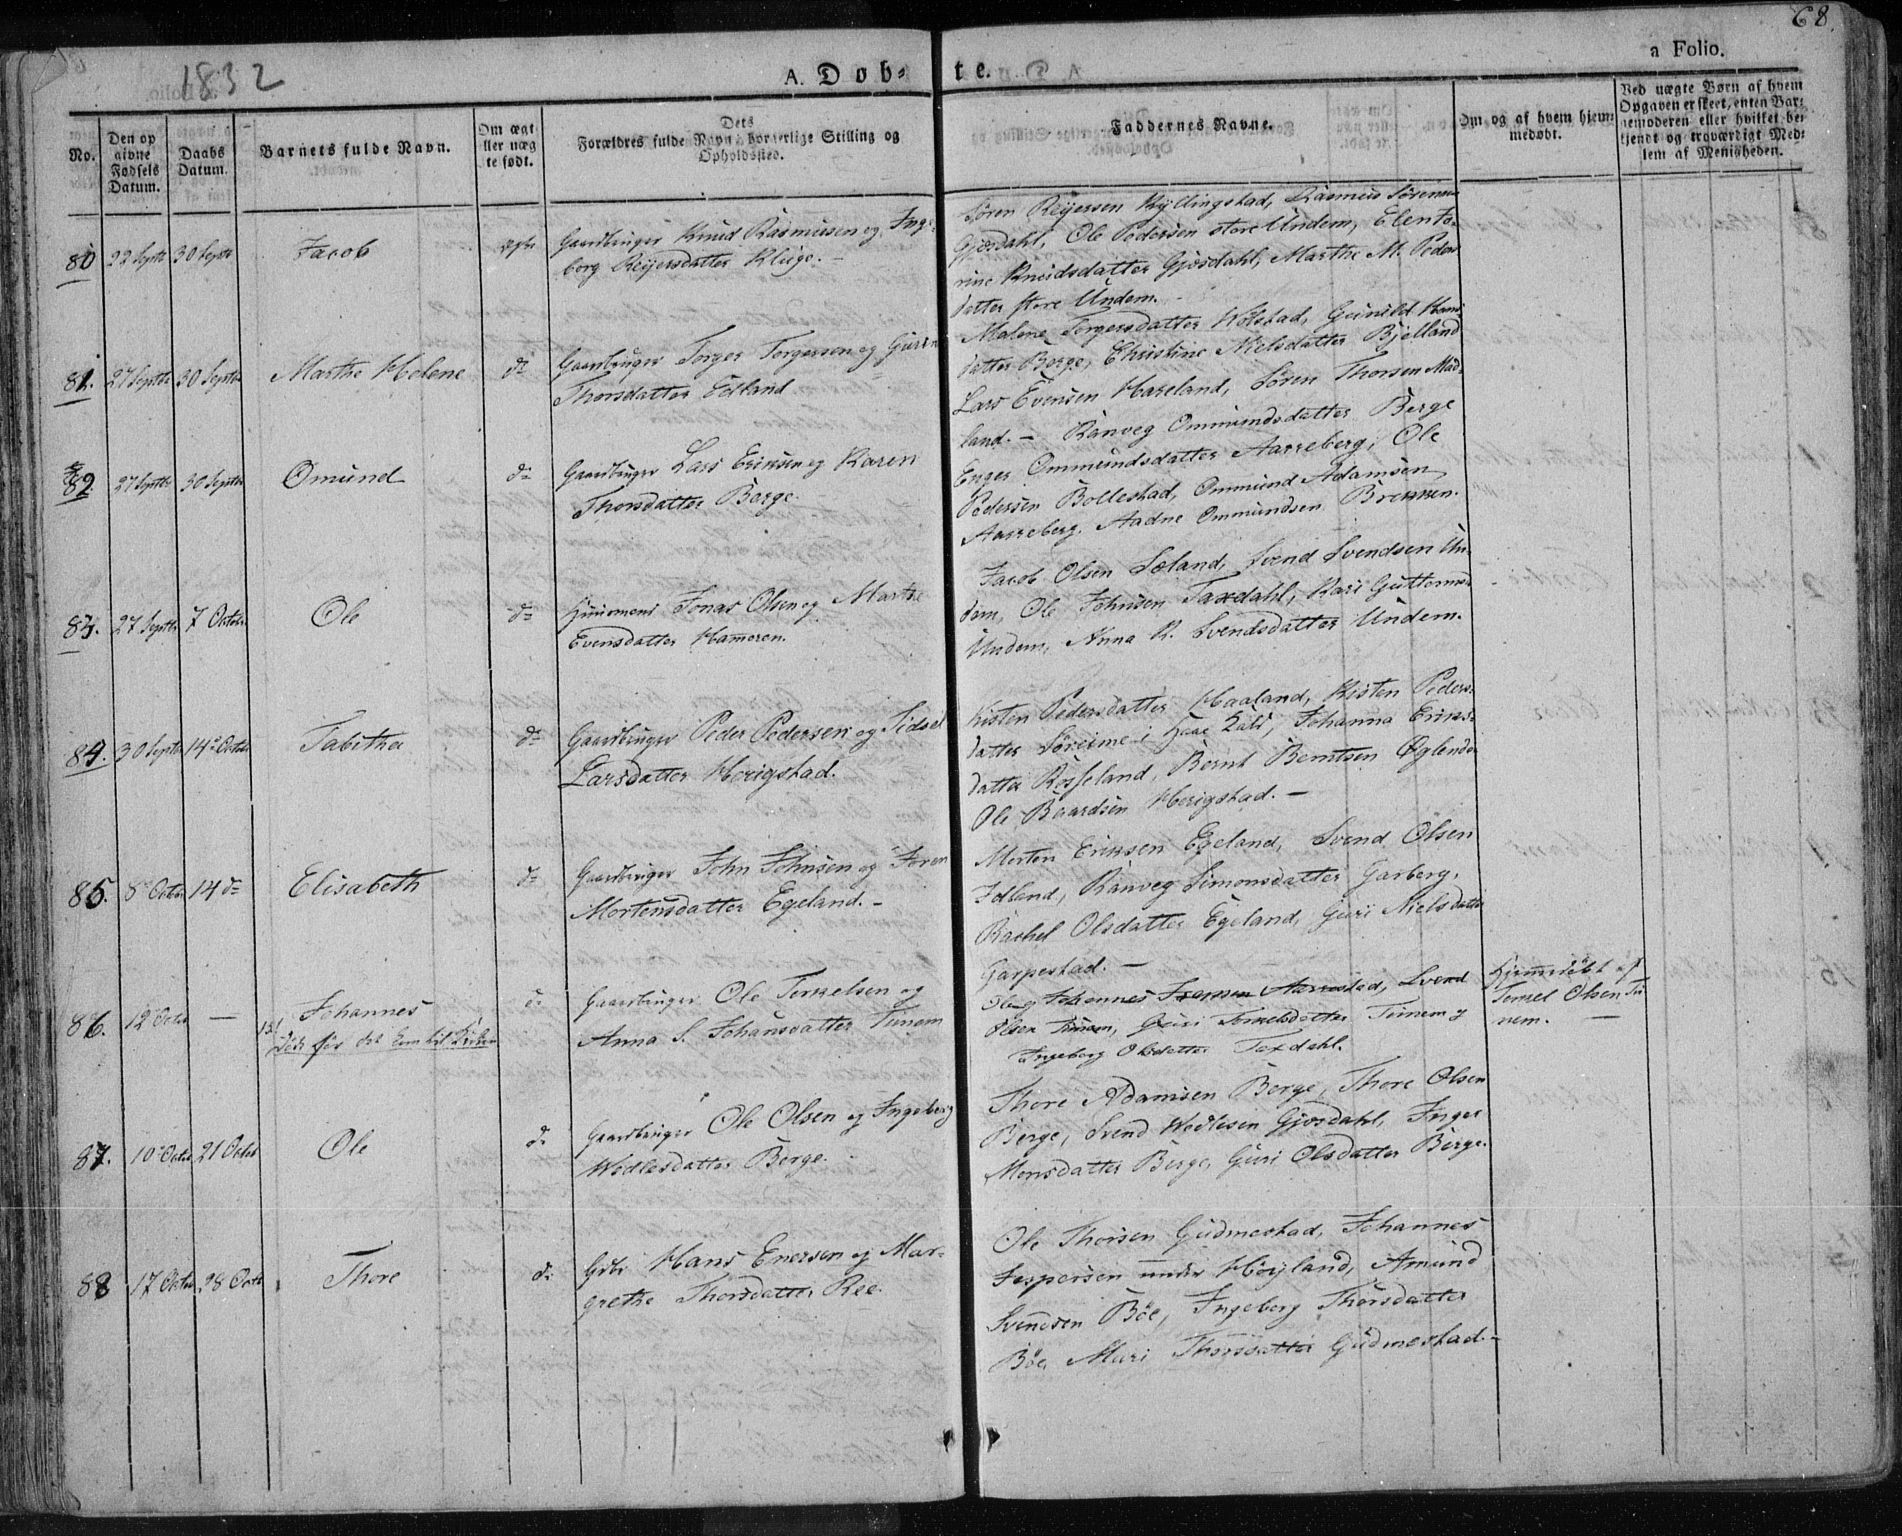 68
1832
A. Døb-
te.
a Folio.
No.
Den op
givne
Fødsels
Datum.
Daabs
Datum.
Barnets fulde Navn.
Om ægt
eller uæg
te født.
Dets
Forældres fulde Navn, borgerlige Stilling og
Opholdssted.
Faddernes Navne.
Om og af hvem hjem-
medøbt.
Ved uægte Børn af hvem
Opgaven er skeet, enten Bar-
nemoderen eller hvilket be-
kjendt og troværdigt Med-
lem af Menigheden.
80 22 Septbr 30 Septbr Jacob ægte Gaardbruger Knud Rasmussen og Inge-
borg Reijersdatter Kluge. -
Søren Reijersen Kyllingstad, Rasmus Sørensen
Gjesdahl, Ole Pedersen store Undem, Elen Ka-
rine Knudsdatter Gjesdahl, Marthe M. Peders
datter store Undem. -
81. 27 Septbr 30 Septbr Marthe Helene do Gaardbruger Torger Torgersen og Guri
Thorsdatter Edland
Malene Torgersdatter Kolstad, Gunild Hans
datter Berge, Christine Nielsdatter Bjelland
Lars Evensen Hareland, Søren Thorsen Mad-
land. -
82 27 Septbr 30 Septbr Omund do Gaardbruger Lars Ericksen og Karen
Thorsdatter Berge.
Ranveg Ommundsdatter Berge
Enger Ommundsdatter Aarreberg, Ole
Pedersen Bollestad, Ommund Adamsen
Aarreberg, Aadne Ommundsen Brekken.
83. 27 Septbr 7 October Ole do Huusmand Jonas Olsen og Marthe
Evensdatter Hameren.
Jacob Olsen Sæland, Svend Svendsen Un-
dem, Ole Johnsen Taxdahl, Kari Guttormsd
Undem, Anna R. Svendsdatter Undem.
84. 30 Septbr 14 October Tabitha do Gaardbruger Peder Pedersen og Sidsel
Larsdatter Herigstad.
Kisten Pedersdatter Haaland, Kisten Peders-
datter Søreime i Haae Kald, Johanna Eriks-
datter Rosseland, Bernt Berntsen Øglende
Ole Baardsen Herigstad. -
85. 8 October 14 do Elisabeth do Gaardbruger John Johnsen og Joren
Mortensdatter Egeland. -
Morten Eriksen Egeland, Svend Olsen
Edland, Ranveg Simonsdatter Garberg,
Rachel Olsdatter Egeland, Guri Nielsdatter
Garpestad. -
86. 12 Octbr - Johannes
Døde før det kom til Kirken
do Gaardbruger Ole Tonnelsen og
Anna S. Johansdatter Tunem
Ole og Johannes Aarrestad, Svend
Olsen Tunem, Guri Tonnelsdatter Tunem og
Ingeborg Olsdatter Taxdahl.
Hjemmedøbt af
Tonnel Olsen Tu-
nem. -
87. 10 Octbr 21 Octbr Ole do Gaardbruger Ole Olsen og Ingeborg
Wedlesdatter Berge.
Thore Adamsen Berge, Thore Olsen
Berge, Svend Wedlesen Gjosdahl, Inger
Monsdatter Berge, Guri Olsdatter Berge.
88 17 Octbr 28 Octb Thore do Grbr Hans Enersen og Mar-
grethe Thorsdatter Ree.
Ole Thorsen Gudmestad, Johannes
Jespersen under Høyland, Amund
Svendsen Bøe, Ingeborg Thorsdatter
Bøe, Mari Thorsdatter Gudmestad. -